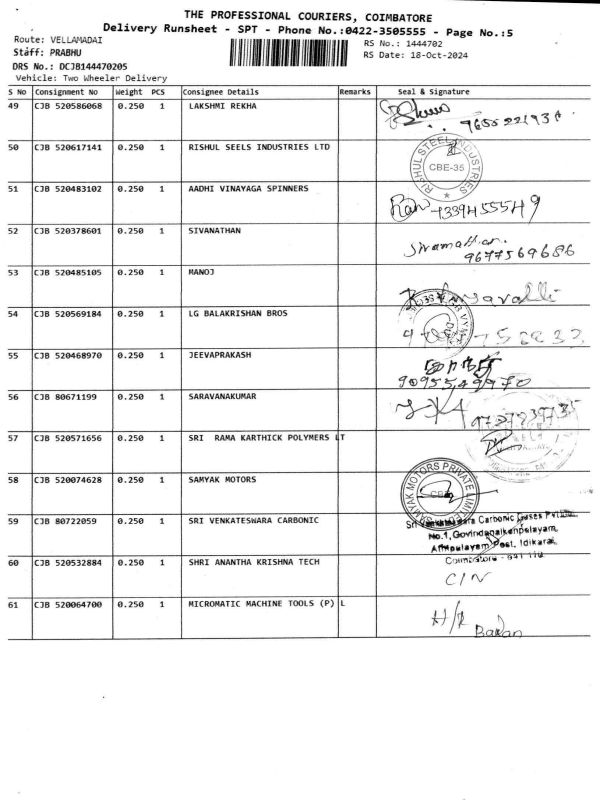 THE PROFESSIONAL COURIERS, COIMBATORE
Delivery Runsheet - SPT - Phone No.:0422-3505555 - Page No.:5
Route: VELLAMADAI
RS No.: 1444702
Staff: PRABHU
RS Date: 18-Oct-2024
DRS No.: DCJB144470205
Vehicle: Two Wheeler Delivery
S No Consignment No Weight PCS Consignee Details Remarks Seal & Signature
49 CJB 520586068 0.250 1 LAKSHMI REKHA
50 CJB 520617141 0.250 1 RISHUL SEELS INDUSTRIES LTD RISHUL STEEL INDUSTRIES CBE-35
51 CJB 520483102 0.250 1 AADHI VINAYAGA SPINNERS
52 CJB 520378601 0.250 1 SIVANATHAN
9677569686
53 CJB 520485105 0.250 1 MANOJ
54 CJB 520569184 0.250 1 LG BALAKRISHAN BROS
55 CJB 520468970 0.250 1 JEEVAPRAKASH
56 CJB 80671199 0.250 1 SARAVANAKUMAR
57 CJB 520571656 0.250 1 SRI RAMA KARTHICK POLYMERS LT
58 CJB 520074628 0.250 1 SAMYAK MOTORS SAMYAK MOTORS PRIVATE LIMITED
59 CJB 80722059 0.250 1 SRI VENKATESWARA CARBONIC
Carbonic Gases
No.1, Govindanaikenpalayam,
Post, Idikarai,
60 CJB 520532884 0.250 1 SHRI ANANTHA KRISHNA TECH
Coimbatore
C/N
61 CJB 520064700 0.250 1 MICROMATIC MACHINE TOOLS (P) L
H/R